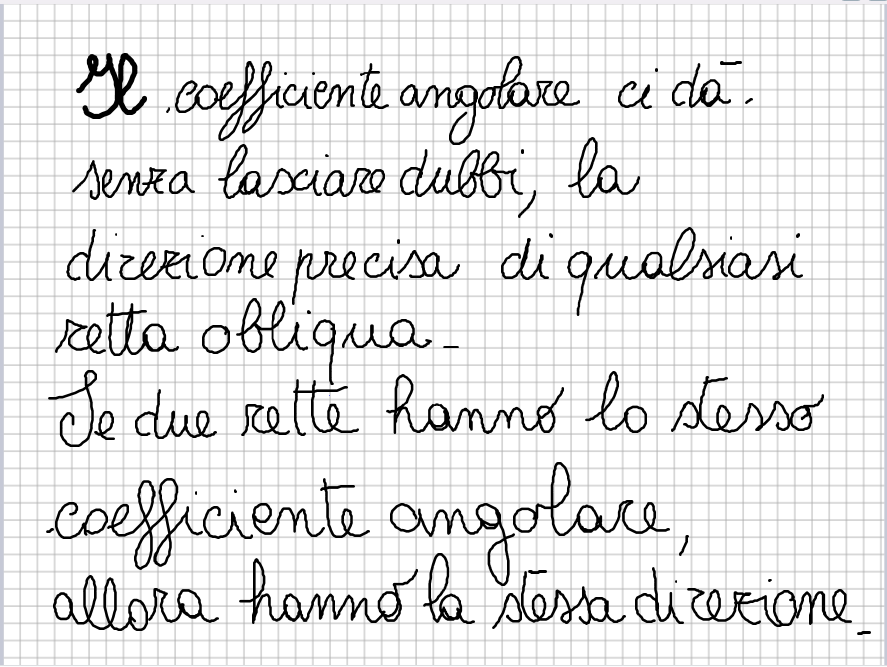 Il coefficiente angolare ci dà,
senza lasciare dubbi, la
direzione precisa di qualsiasi
retta obliqua.
Se due rette hanno lo stesso
coefficiente angolare,
allora hanno la stessa direzione.